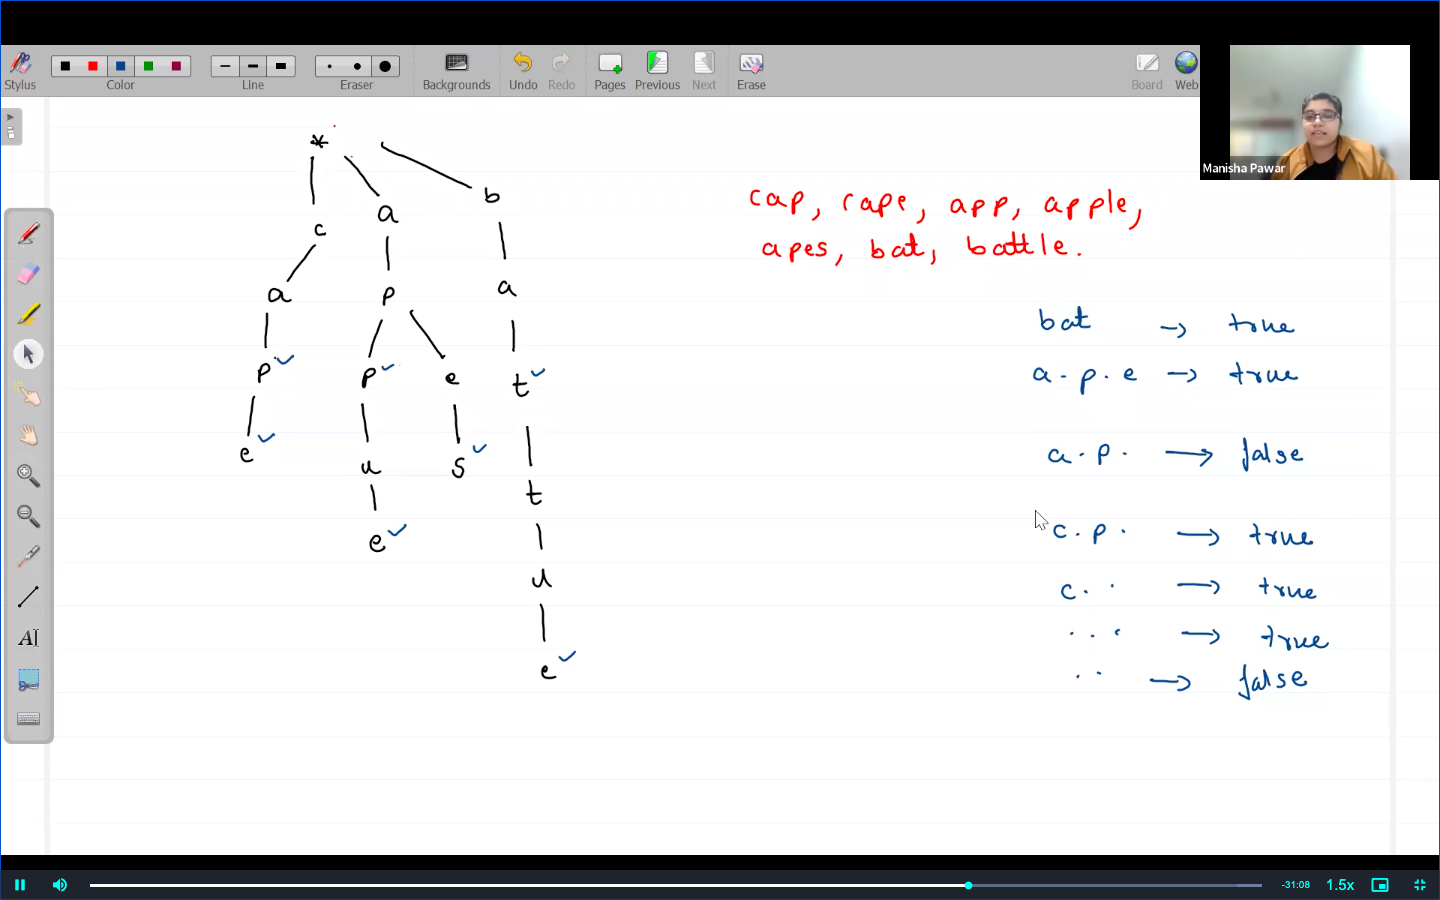 Stylus Color Line Eraser Backgrounds Undo Redo Pages Previous Next Erase Board Web
Manisha Pawar
*
b
a
c
cap, cape, app, apple,
apes, bat, battle.
a p a
bat → true
p p e t
a . p . e → true
e u s
a . p . → false
t
e
c . p . → true
u
c . . → true
. . . → true
e
. . → false
AI
-31:08 1.5x